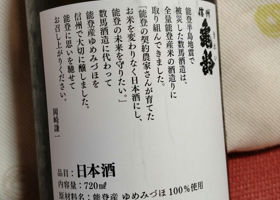 信州亀齢
能登半島地震で
被災した数馬酒造は、
全量能登産米の酒造りに
取り組んできました。
「能登の契約農家さんが育てた
お米を変わりなく日本酒にし、
能登の未来を守りたい。」
数馬酒造に代わって
信州で大切に醸しました、
能登産ゆめみづほ。
能登に思いを馳せて
お召し上がりください。
岡崎謙一
品目:日本酒
内容量:720㎖
原材料名:能登産 ゆめみづほ 100%使用